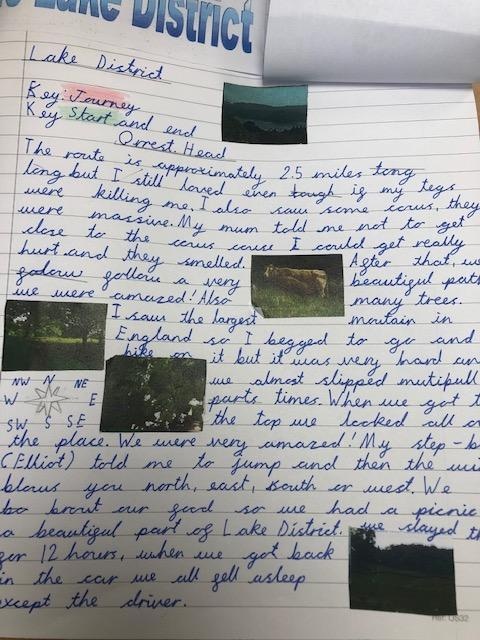 Lake District
Lake District
Key: Journey
Key Start and end
Orrest Head
The route is approximately 2.5 miles long
long but I still loved even tough if my legs
were killing me. I also saw some cows, they
were massive. My mum told me not to get
close to the cows cause I could get really
hurt and they smelled. After that, we
follow a very beautiful path
we were amazed! Also many trees.
I saw the largest moutain in
England so I begged to go and
hike on it but it was very hard an
we almost slipped mutipull
parts times. When we got t
the top we looked all o
the place. We were very amazed! My step-b
(Elliot) told me to jump and then the wi
blows you north, east, south or west. We
bo brout our food so we had a picnic
a beautiful part of Lake District. we stayed th
for 12 hours, when we got back
in the car we all fell asleep
except the driver.
NW N NE
W E
SW S SE
Ref: US32